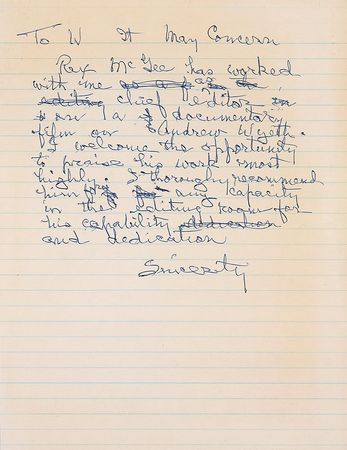 To W It May Concern
Rex McGee has worked
with me as a
editing chief editor in
on a documentary
film on Andrew Wyeth.
I welcome the opportunity
to praise his work most
highly. I thoroughly recommend
him for any capacity
in the editing room for
his capability dedication
and dedication
Sincerity